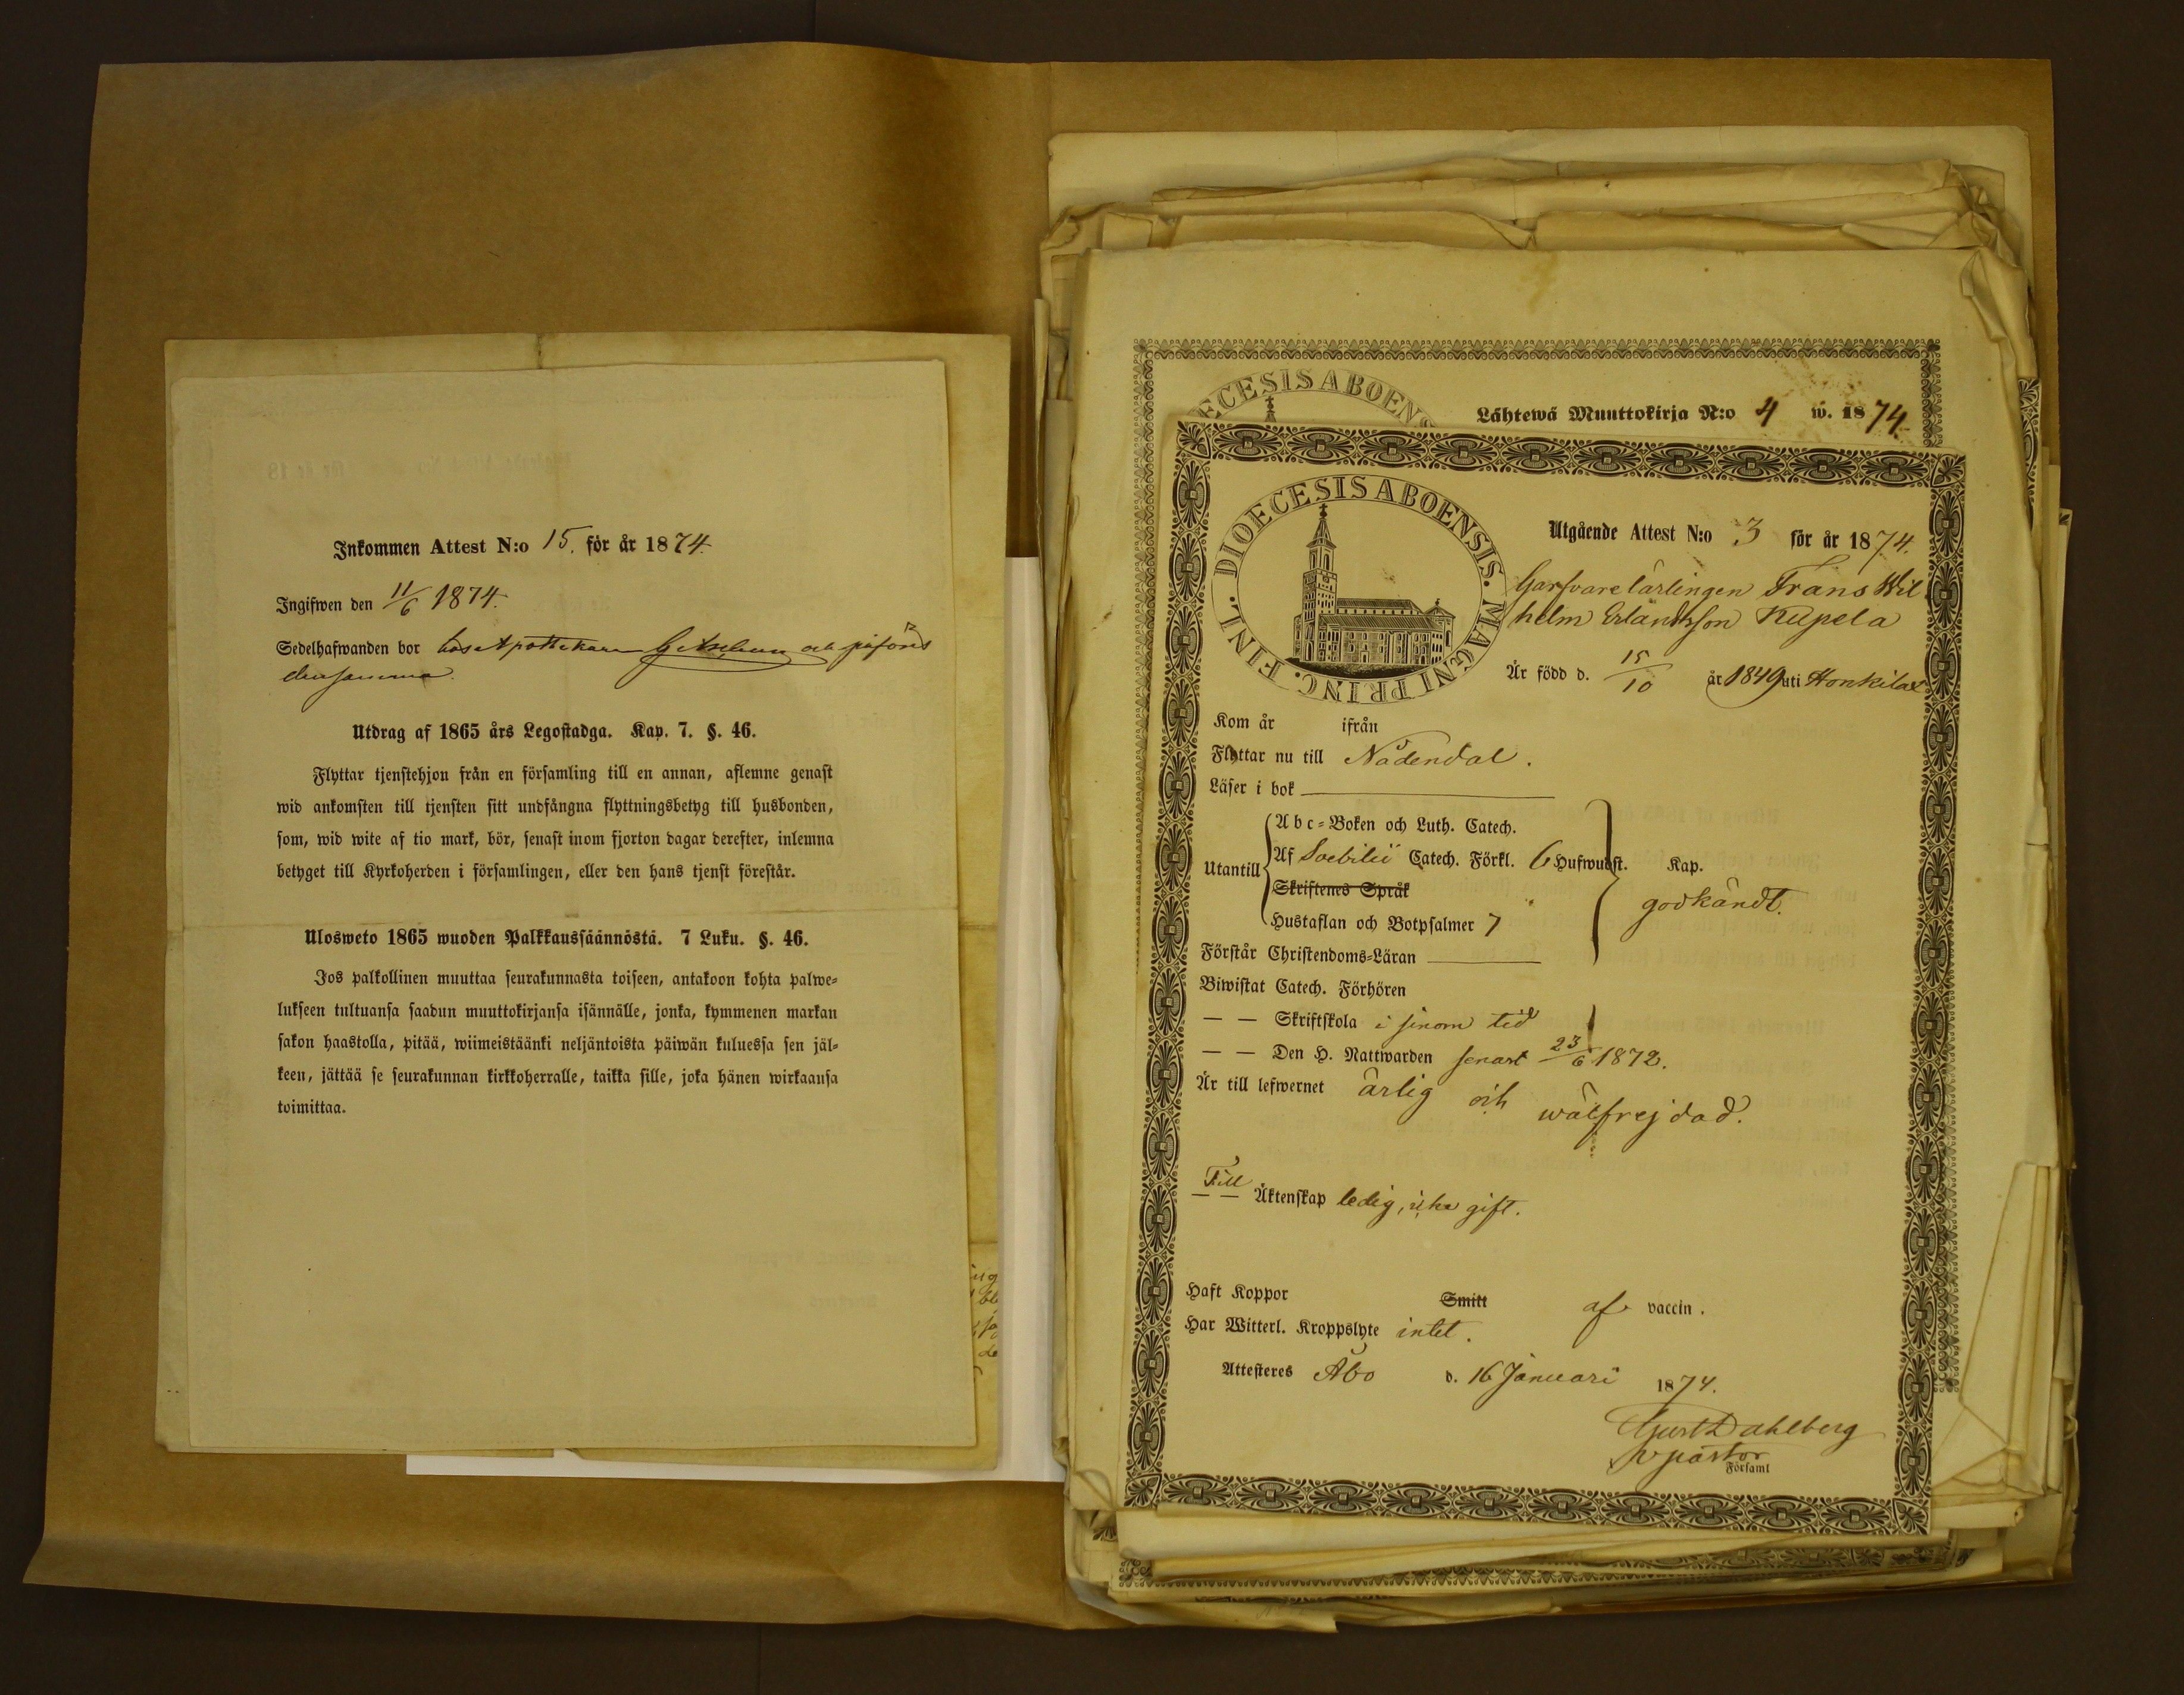 Inkommen Attest N:o 15. för år 1874.
Ingifwen den 11/6 1874.
Sedelhafwanden bor hos Apothekaren och påförd
densamma.
Utdrag af 1865 års Legostadga. Kap. 7. §. 46.
Flyttar tjenstehjon från en församling till en annan, aflemne genast
wid ankomsten till tjensten sitt undfångna flyttningsbetyg till husbonden,
som, wid wite af tio mark, bör, senast inom fjorton dagar derefter, inlemna
betyget till Kyrkoherden i församlingen, eller den hans tjenst förestår.
Ulosweto 1865 wuoden Palkkaussäännöstä. 7 Luku. §. 46.
Jos palkollinen muuttaa seurakunnasta toiseen, antakoon kohta palwe-
lukseen tultuansa saadun muuttokirjansa isännälle, jonka, kymmenen markan
sakon haastolla, pitää, wiimeistäänki neljäntoista päiwän kuluessa sen jäl-
keen, jättää se seurakunnan kirkkoherralle, taikka sille, joka hänen wirkaansa
toimittaa.
ECESIS ABOENS
Lähtewä Muuttokirja N:o 4 w. 1874.
DIOECESIS ABOENSIS. MAGNI PRINC. FINL.
Utgående Attest N:o 3 för år 1874.
Garfvarelärlingen Frans Wil
helm Erlandsson Kupela
Är född d. 15/10 år 1849 uti Honkilax
Kom år ifrån
Flyttar nu till Nådendal.
Läser i bok
Abc-Boken och Luth. Catech.
Utantill Af Svebilii Catech. Förkl. 6 Hufwudst. Kap.
Skriftenes Språk
godkändt.
Hustaflan och Botpsalmer 7
Förstår Christendoms-Läran
Biwistat Catech. Förhören
— — Skriftskola i sinom tid
— — Den H. Nattwarden senast 23/6 1872.
Är till lefwernet ärlig och wälfrejdad.
Till
— — Äktenskap ledig, icke gift.
Haft Koppor Smitt af vaccin.
Har Witterl. Kroppslyte intet.
Attesteres Åbo d. 16 Januari 1874.
Dahlberg
v pastor
Församl